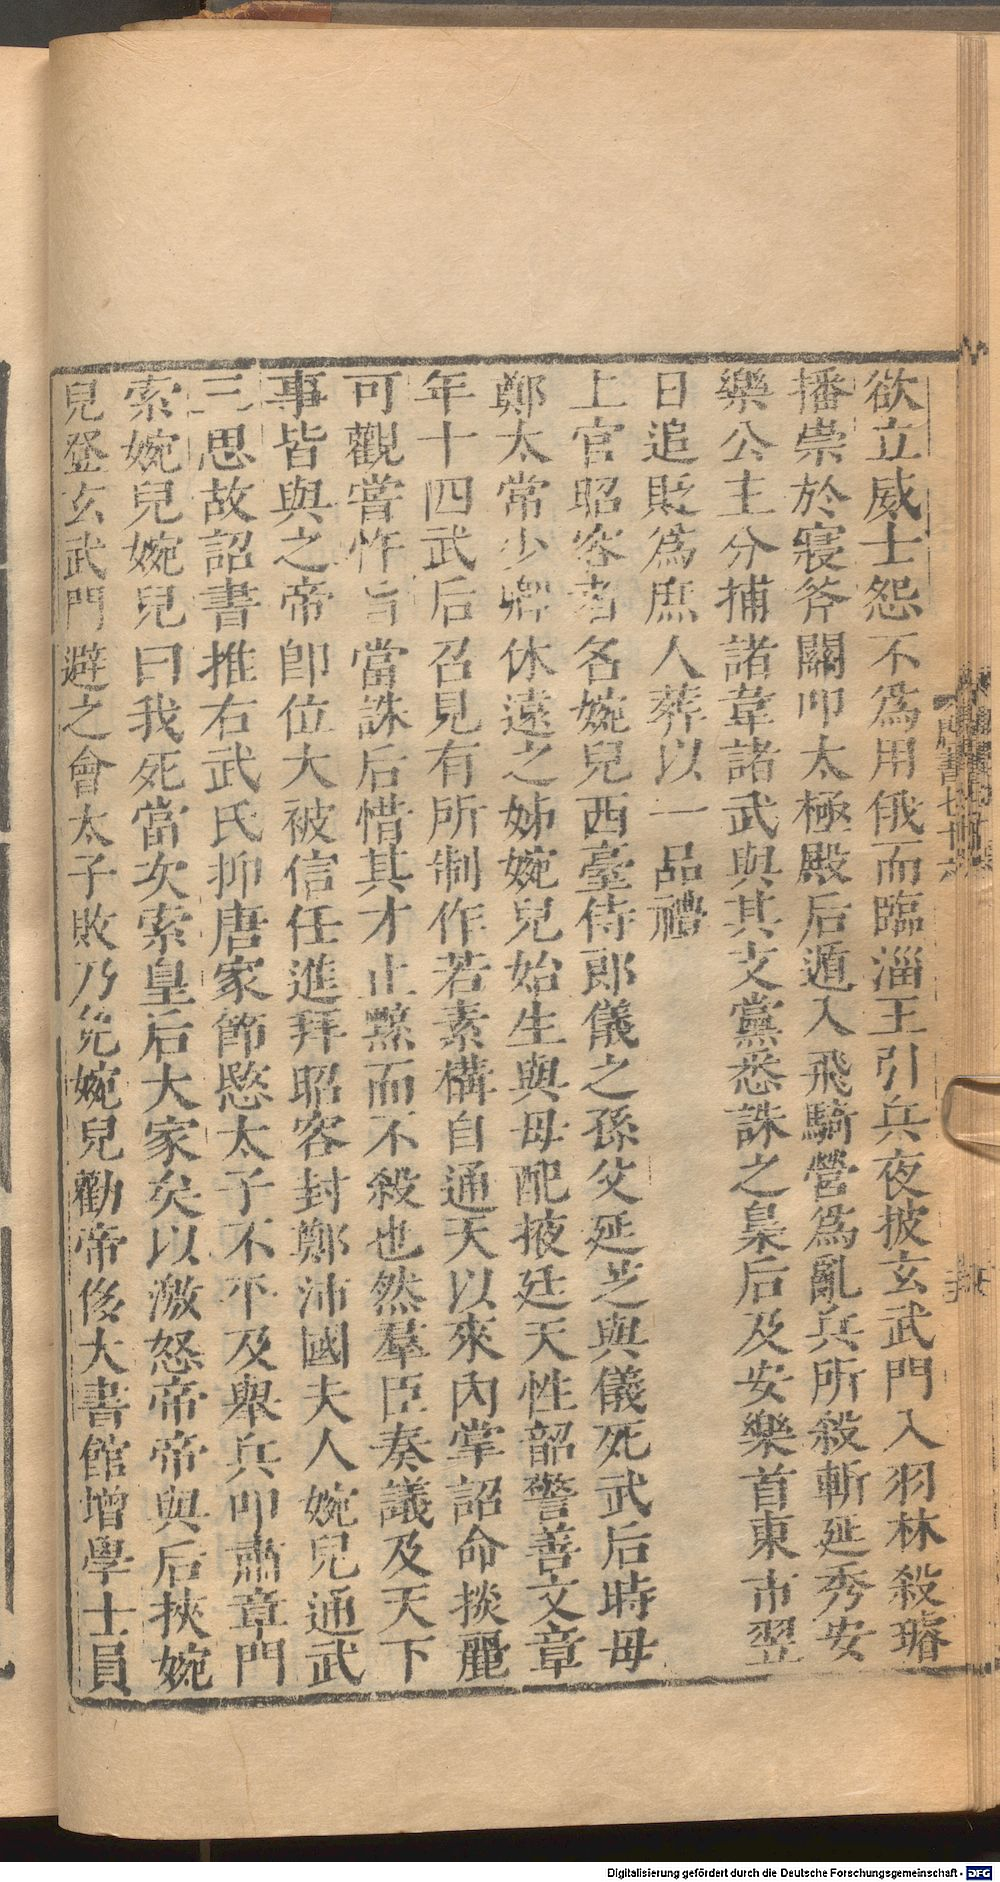 欲立威士怨不爲用俄而臨淄王引兵夜披玄武門入羽林殺璿
播崇於寢斧關叩太極殿后遁入飛騎營爲亂兵所殺斬延秀安
樂公主分捕諸韋諸武與其支黨悉誅之梟后及安樂首東市翌
日追貶爲庶人葬以一品禮
上官昭容者名婉兒西臺侍郎儀之孫父延芝與儀死武后時母
鄭太常少卿休遠之姊婉兒始生與母配掖廷天性韶警善文章
年十四武后召見有所制作若素構自通天以來內掌詔命掞麗
可觀嘗忤旨當誅后惜其才止黥而不殺也然羣臣奏議及天下
事皆與之帝卽位大被信任進拜昭容封鄭沛國夫人婉兒通武
三思故詔書推右武氏抑唐家節愍太子不平及舉兵叩肅章門
索婉兒婉兒曰我死當次索皇后大家矣以激怒帝帝與后挾婉
兒登玄武門避之會太子敗乃免婉兒勸帝侈大書館增學士員
唐書七十六
Digitalisierung gefördert durch die Deutsche Forschungsgemeinschaft - DFG